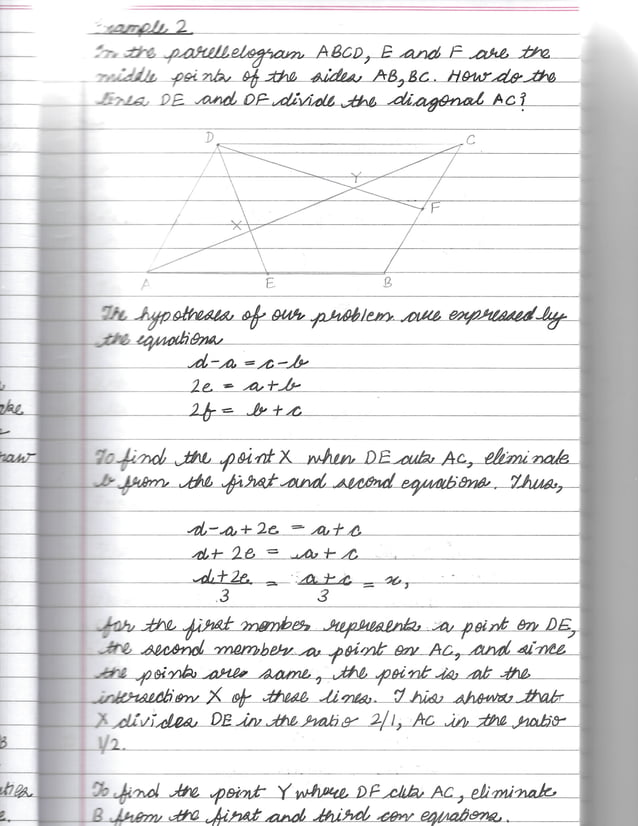 Example 2
In the parellelogram ABCD, E and F are the
middle points of the sides AB, BC. How do the
lines DE and DF divide the diagonal AC?
D
C
Y
F
X
A
E
B
The hypotheses of our problem are expressed by
the equations
d-a = c-b
2e = a+b
2f = b+c
To find the point X when DE cuts AC, eliminate
b from the first and second equations. Thus,
d-a+2e = a+c
d+ 2e = a+c
d+2e/3 = a+c/3 = x,
for the first member represents a point on DE,
the second member a point on AC, and since
the points are same, the point is at the
intersection X of these lines. This shows that
X divides DE in the ratio 2/1, AC in the ratio
1/2.
To find the point Y where DF cuts AC, eliminate
B from the first and third con equations.